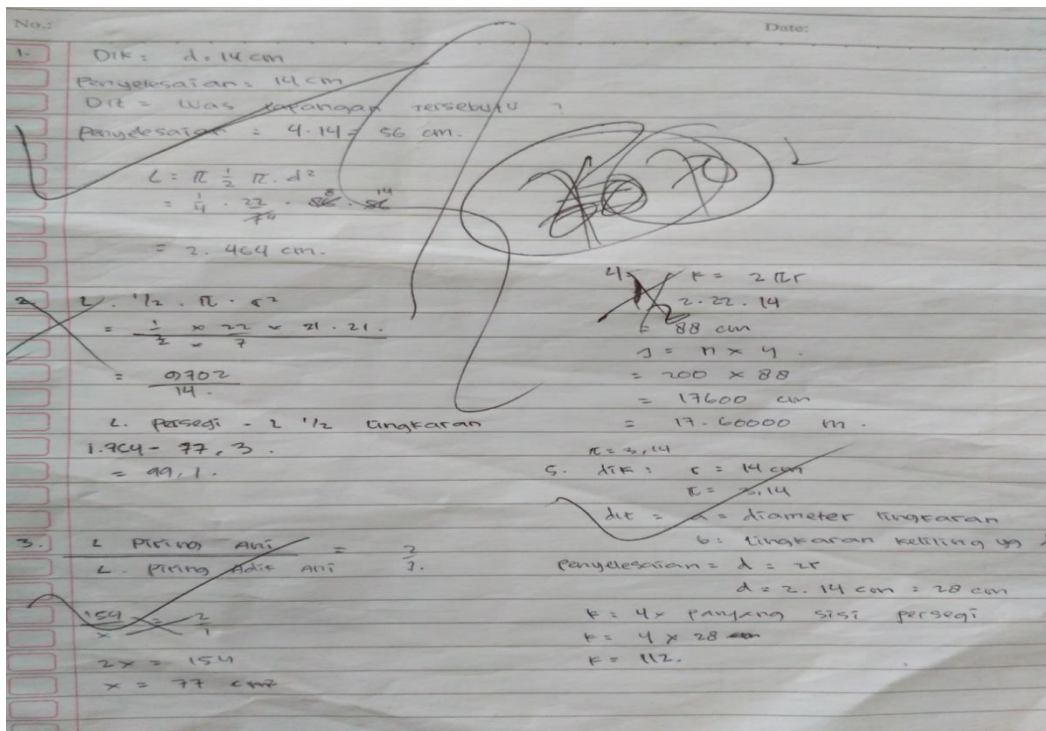 No.:
Date:
1. Dik = d = 14 cm
Penyelesaian = 14 cm
Dit = Luas Lapangan Tersebutu ?
Penyelesaian = 4.14 = 56 cm.
L = π 1/2 π. d²
= 1/4 . 22/7 . 56 . 56
8 14
= 2.464 cm.
70
2 L. 1/2 . π . r²
= 1/2 x 22/7 x 21 . 21.
= 9702/14.
L. Persegi - L 1/2 Lingkaran
1.764 - 77,3.
= 99,1.
3. L Piring Ani / L. Piring Adik Ani = 2/1.
154/x = 2/1
2x = 154
x = 77 cm²
4. K = 2πr
2.22.14
= 88 cm
J = n x 4.
= 200 x 88
= 17600 cm
= 17.60000 m.
π = 3,14
5. dik : r = 14 cm
π = 3,14
dit = a = diameter lingkaran
b = lingkaran keliling yg
Penyelesaian = d = 2r
d = 2.14 cm = 28 cm
K = 4 x Panyang sisi persegi
K = 4 x 28 cm
K = 112.